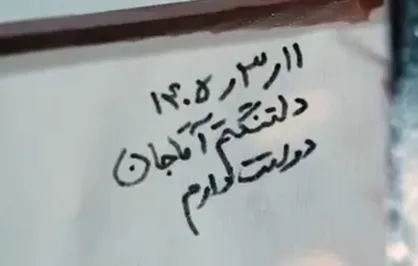 ۱۱ر۳ر۱۴۰۵
دلتنگتم آقاجان
دوستت دارم